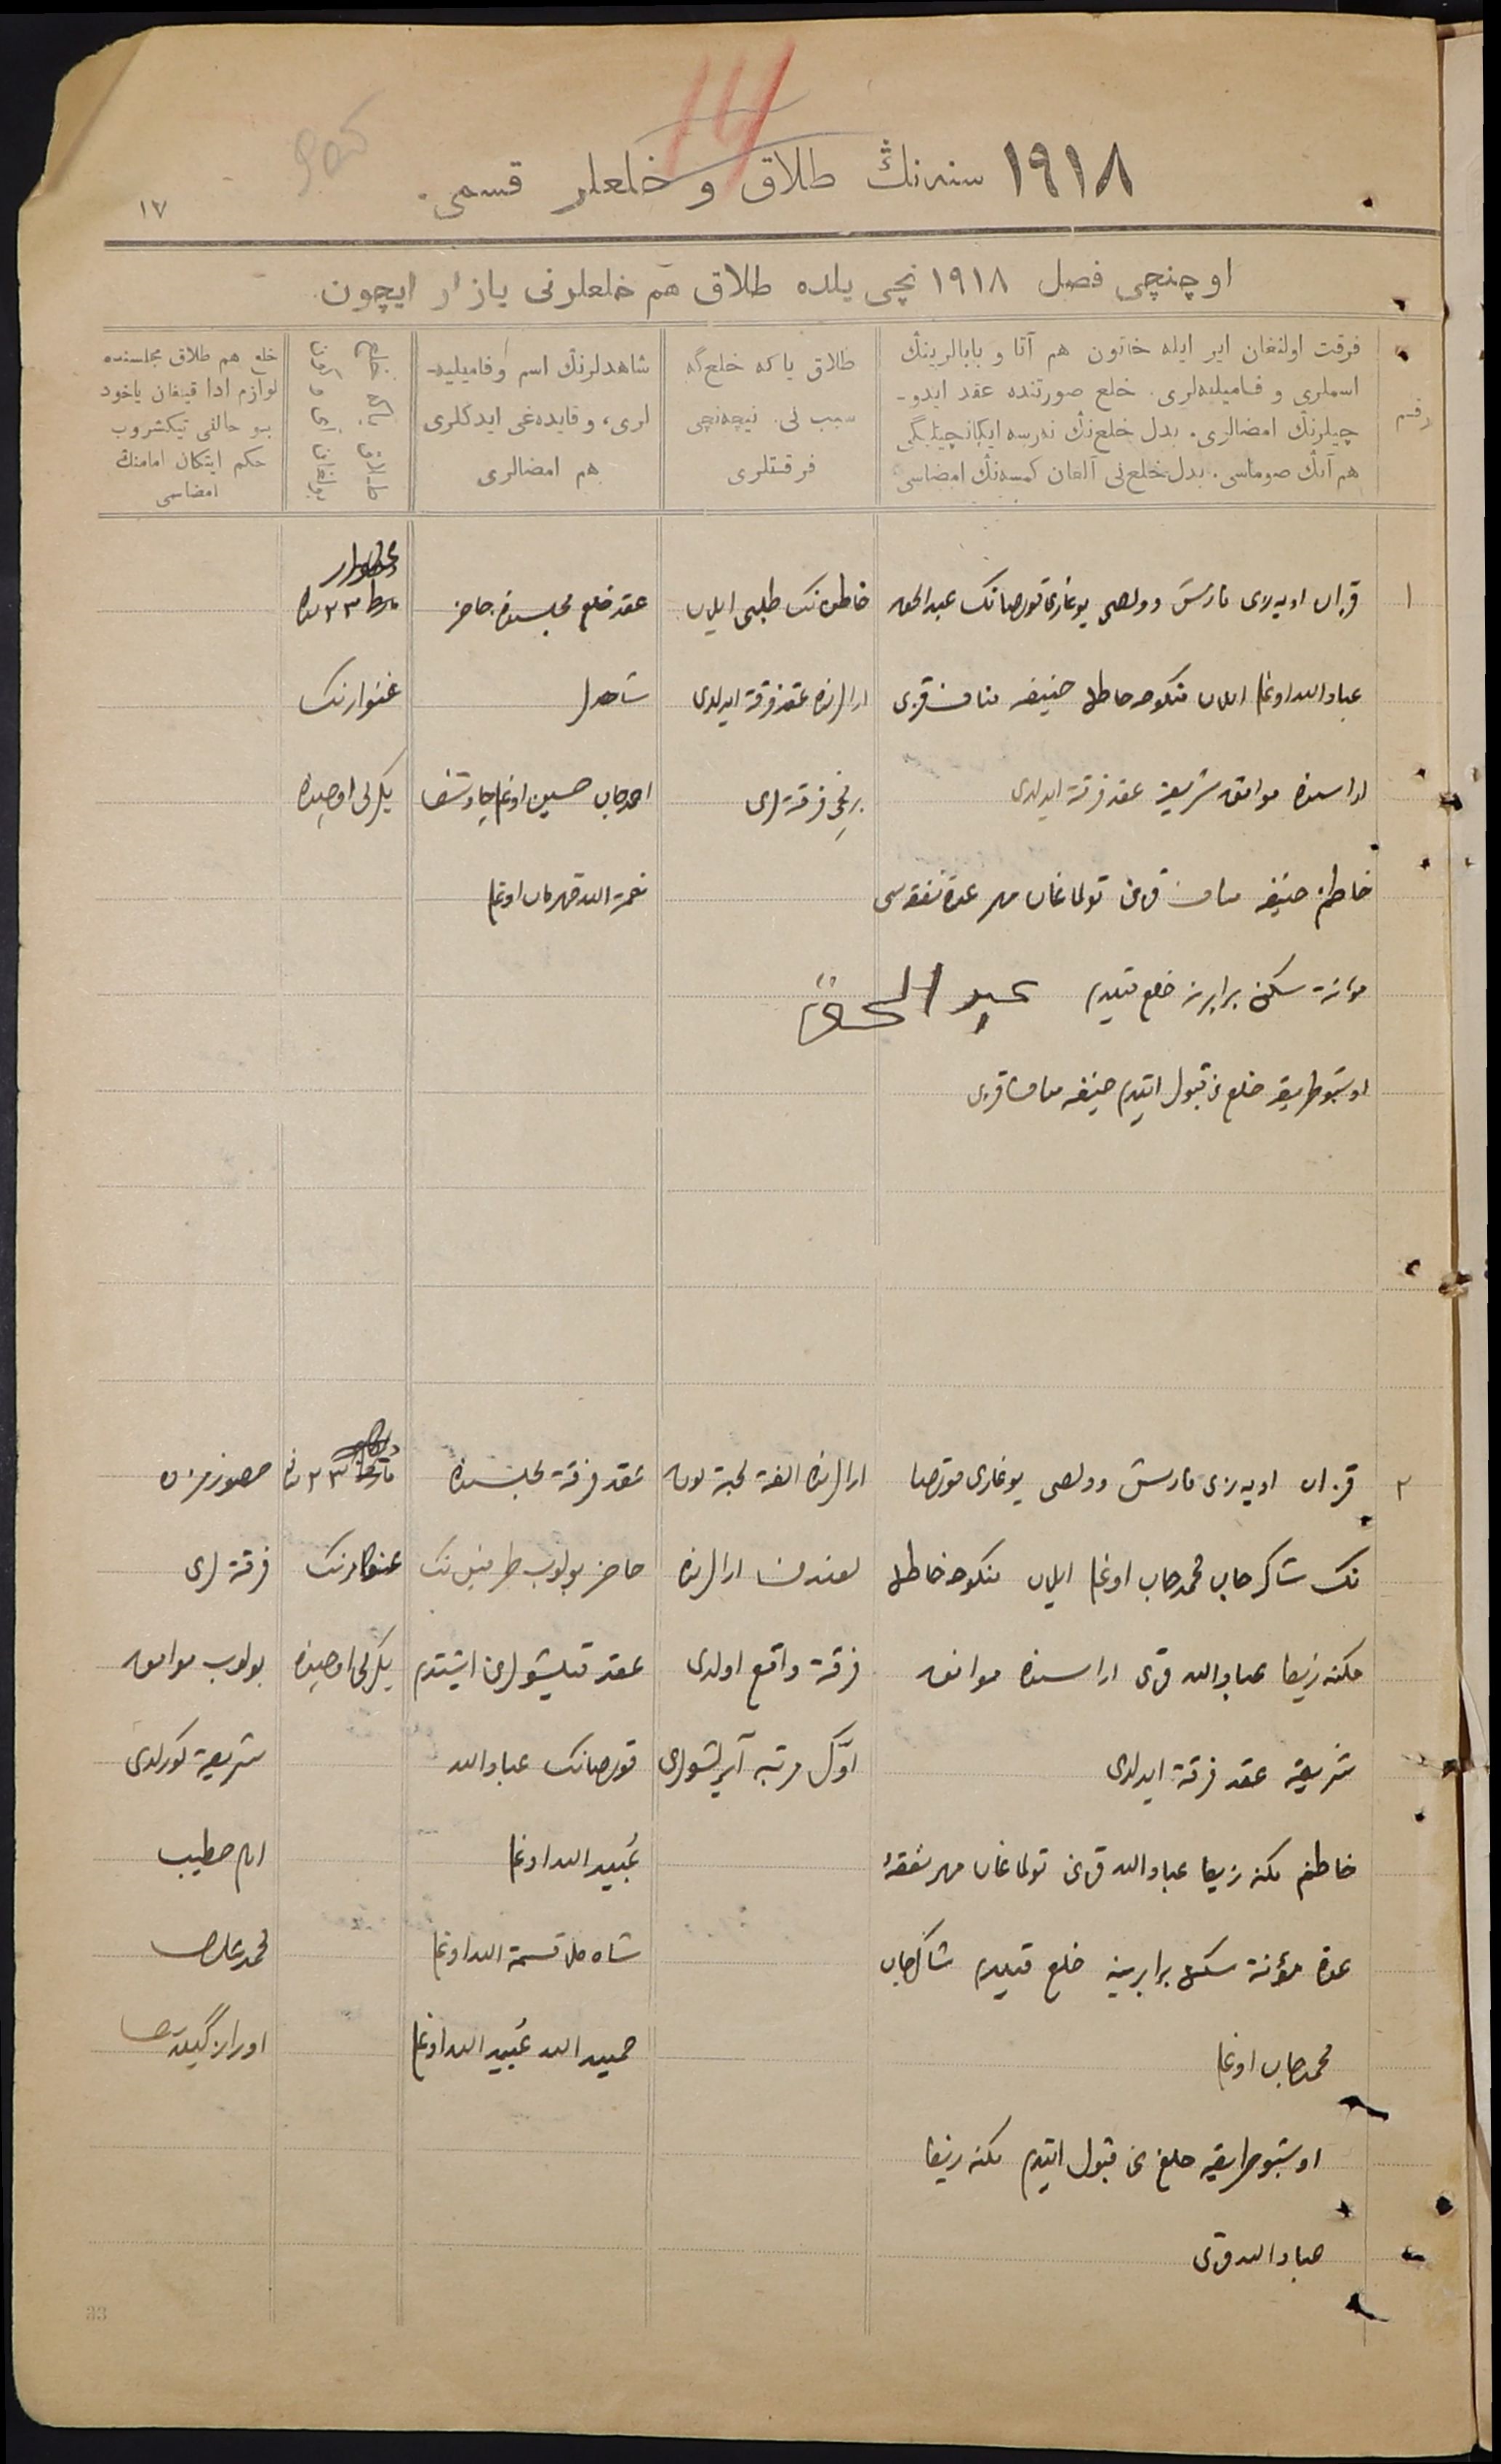 14
١٩١٨ سنه‌نڭ طلاق و خلعلر قسمی.
١٧
اوچنچی فصل ١٩١٨ نچی یلده طلاق هم خلعلرنی یازار ایچون.
رقم
فرقت اولنغان ایر ایله خاتون هم آتا و بابالرینڭ
اسملری و فامیلیه‌لری. خلع صورتنده عقد ایدو-
چیلرنڭ امضالری. بدل خلع‌نڭ نه‌رسه ایکانچیلیگی
هم آنڭ صوماسی. بدل خلع‌نی آلغان کمسه‌نڭ امضاسی
طلاق یا که خلع‌گه
سبب نی. نیچه‌نچی
فرقتلری
شاهدلرنڭ اسم و فامیلیه-
لری، و قایده‌غی ایدکلری
هم امضالری
طلاق یا که خلع
بولغان آی و کون
خلع هم طلاق مجلسنده
لوازم ادا قیلغان یاخود
بو حالنی تیکشروب
حکم ایتکان امامنڭ
امضاسی
١
قزان اویه‌زی مارتش وولصی یوغاری قورصانک عبدالحق
عبادالله اوغلی ایلان منکوحه خاطنی حنیفه قزی
اراسنده موافق شریعة عقد فرقة ایدلدی
خاطنم حنیفه قزی تولاماغان مهر عدة نفقه‌سی
مؤنة سکنی برابرینه خلع قیلدم عبد الحق
اوشبو طریقه خلع نی قبول ایتدم حنیفه قزی
خاطوننک طلبی ایلان
ارالرنده عقد فرقة ایدلدی
برنجی فرقة لری
عقد خلع مجلسنده حاضر
شاهدلر
احمدجان حسین اوغلی
نعمة الله قهرمان اوغلی
مارط ٢٣ نده
غنوارنک
یکرمی اوچنده
٢
قزان اویه‌زی مارتش وولصی یوغاری قورصا
نک شاکرجان محمدجان اوغلی ایلان منکوحه خاطنی
عبادالله قزی اراسنده موافق
شریعة عقد فرقة ایدلدی
خاطنم عبادالله قزی تولاماغان مهر نفقهٔ
عدة مؤنة سکنی برابرینه خلع قیلدم شاکرجان
محمدجان اوغلی
اوشبو طریقه خلع نی قبول ایتدم
عبادالله قزی
ارالرنده الفة محبة
ارالرنده
فرقة واقع اولدی
اوّل مرتبه آیرلشولری
عقد فرقة مجلسنده
حاضر بولوب طرفین نک
عقد قیلیشولرین ایشتدم
قورصانک عبادالله
عُبیدالله اوغلی
قسمة الله اوغلی
حمیدالله عُبیدالله اوغلی
مارط ٢٣ نده
غنوارنک
یکرمی اوچنده
حضورمزده
فرقة لری
بولوب موافق
شریعة کورلدی
امام خطیب
33